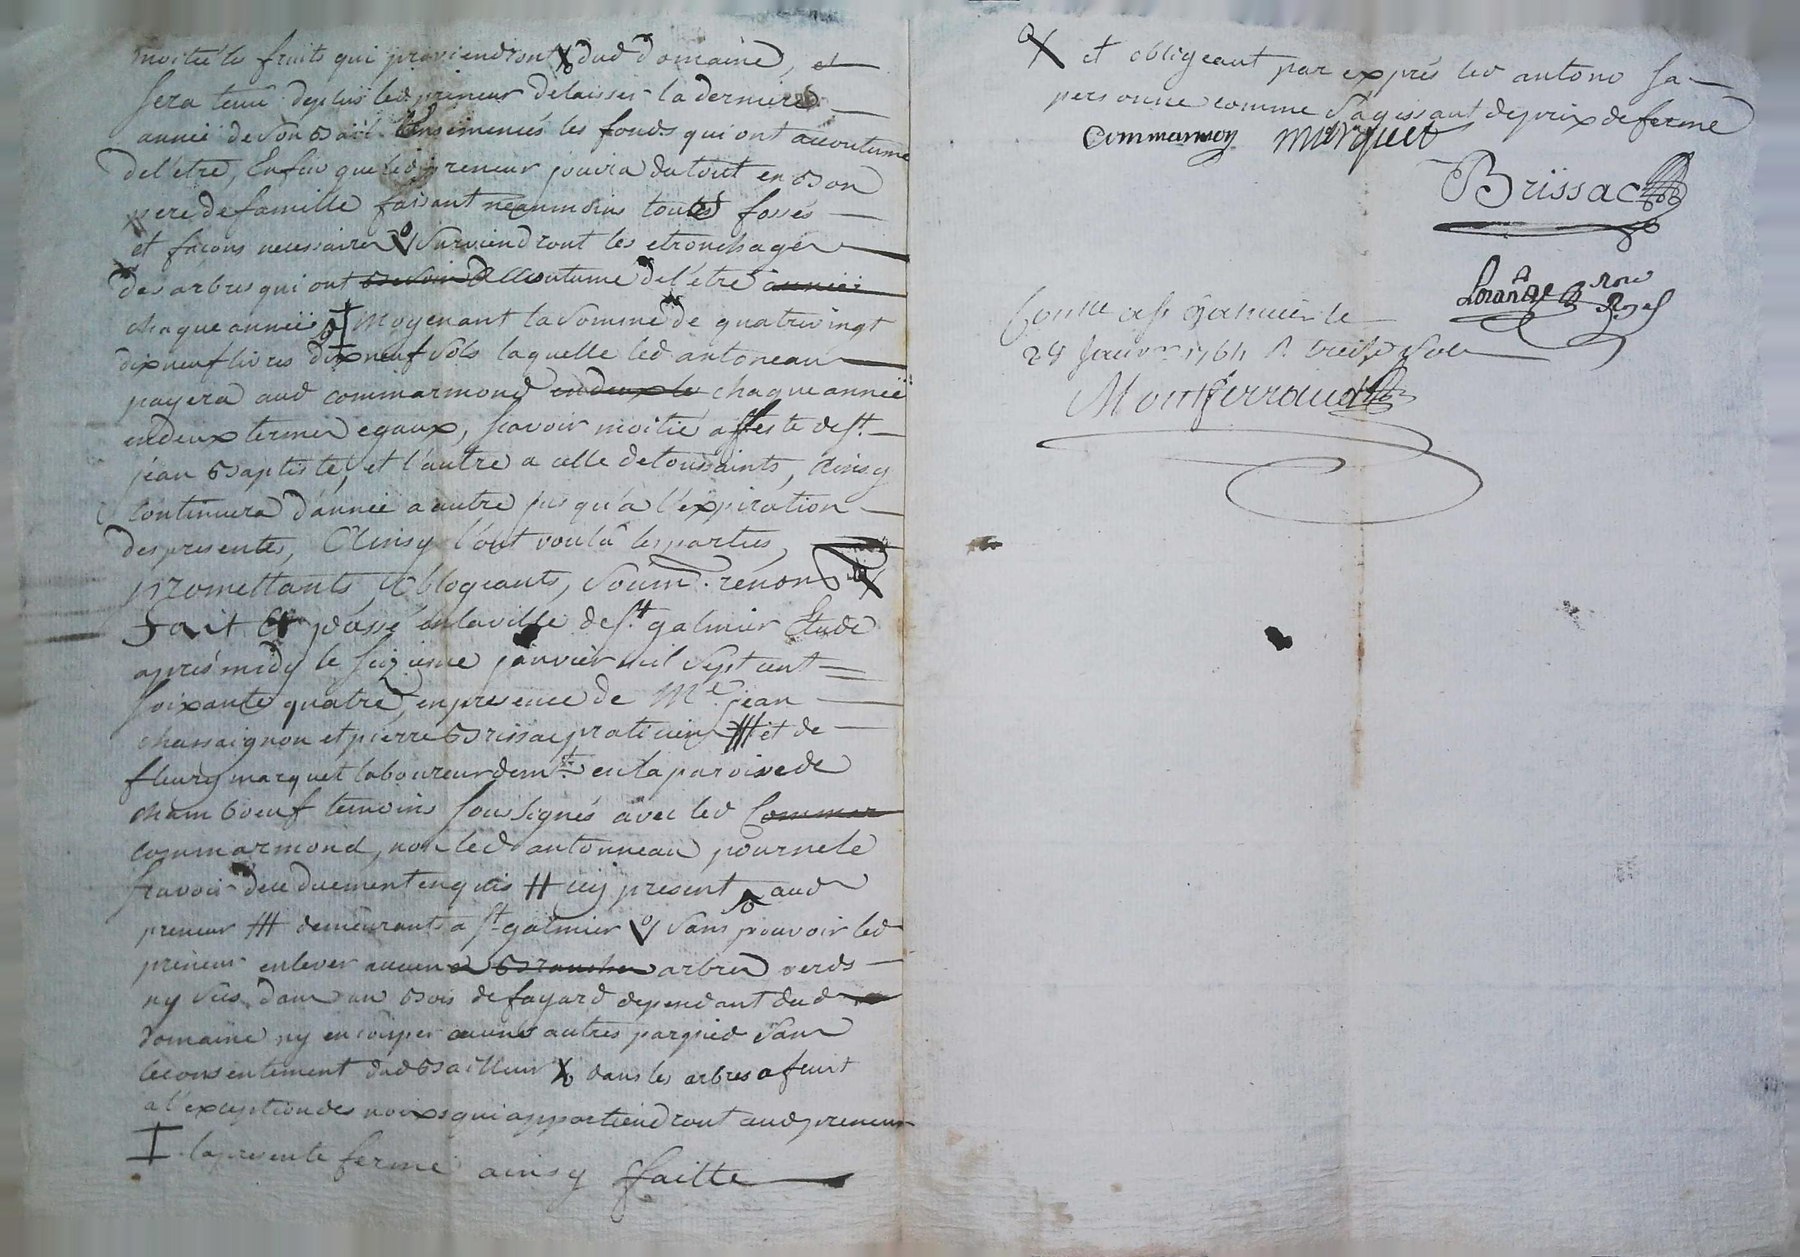 moitié les fruits qui proviendront X dud domaine, et
sera tenu deplus led preneur delaisser la derniere
année de son bail ensemencés les fonds qui ont accoutumé
del'être, Enfin que led preneur jouira du tout en bon
pere defamille faisant neanmoins toutes fossés
et façons necessaires surviendront les etronchages
des arbres qui ont accoutume del'être
chaque année moyenant la somme de quatrevingt
dixneuf livres dixneuf sols laquelle led antoneau
payera aud commarmond chaque année
endeux termes egaux, scavoir moitié affeste de st
jean baptiste, et l'autre a celle detoussaints, Ainsy
continuera d'année a autre jusqu'a l'expiration
des presentes, Ainsy l'ont voulu les parties,
promettants, obligeants, soum. renon X
Fait Et passé enlaville de st galmier Etude
aprés midy le seizieme janvier mil sept cent
soixante quatre, en presence de Me jean
chassaignon et pierre brissac praticiens ## et de
fleury marquet laboureur demt en la paroisse de
chamboeuf temoins soussignés avec led Commar
commarmond, non led antonneau pour ne le
scavoir dece duement enquis # icy present aud
preneur ## demeurants a st galmier sans pouvoir led
preneur enlever aucun branches arbres verds
ny secs dans un bois de fayard dependant dud
domaine ny en couper aucuns autres par pied sans
le consentement dud bailleur X dans les arbres a fruit
a l'exception des noix qui appartiendront aud preneur
la presente ferme ainsy ffaitte
X et obligeant par exprés led antono sa
personne comme s'agissant de prix de ferme
Commarmon marquet
Brissac
Contlle a st galmier le
24 Janvr 1764 R treize sols
Montferraud